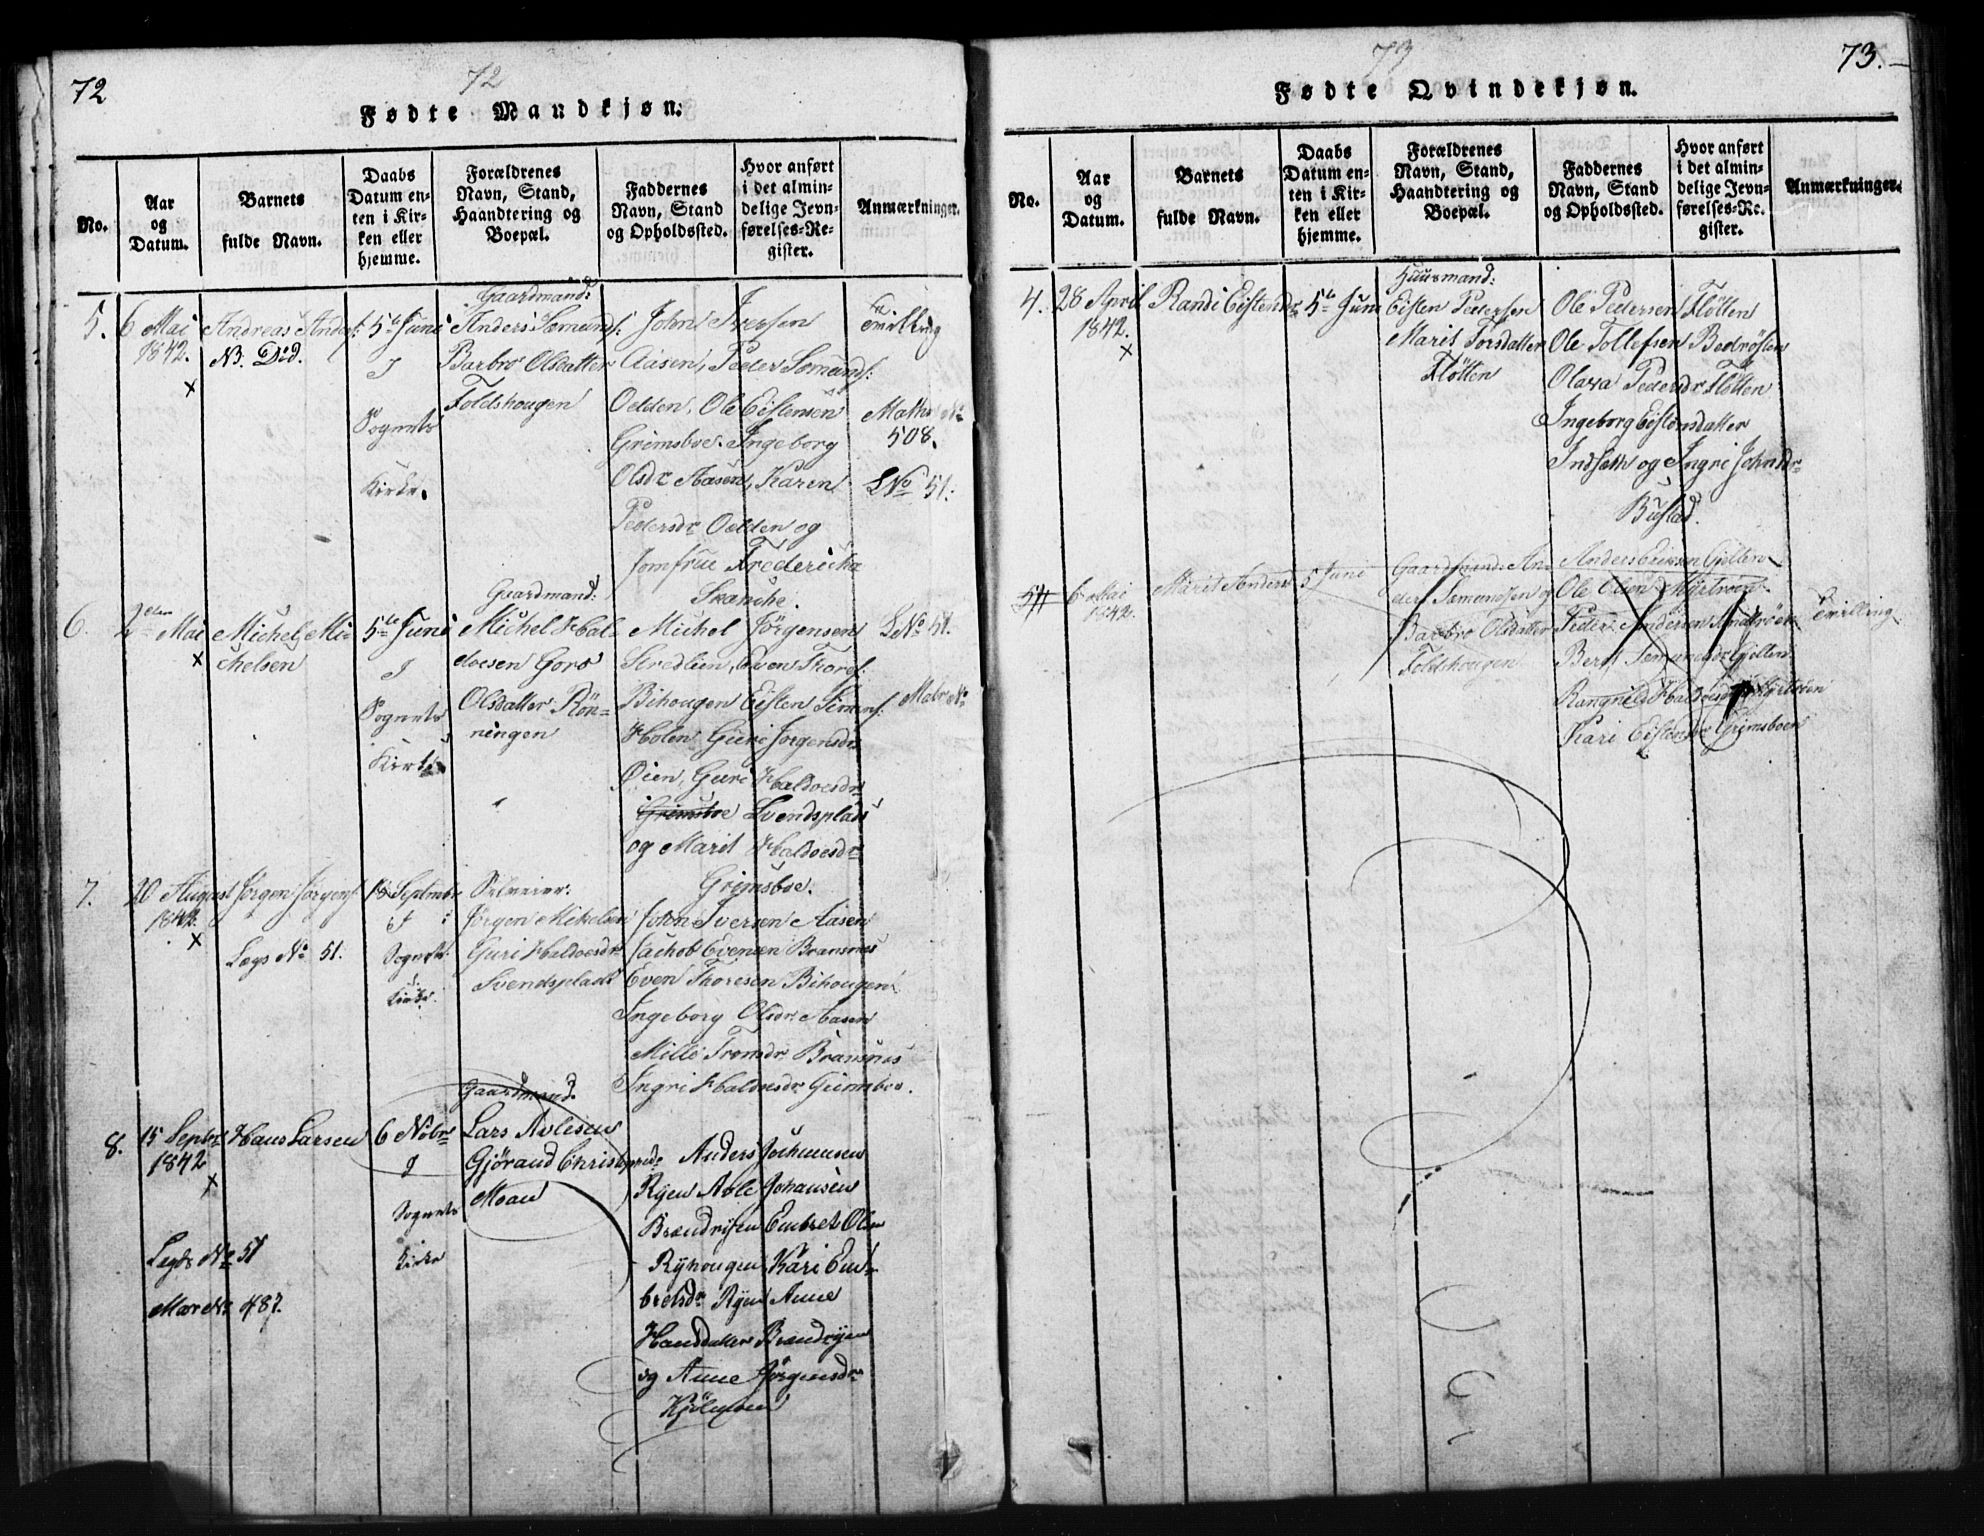 72
72
Fødte Mandkjøn.
No.
Aar
og
Datum.
Barnets
fulde Navn.
Daabs
Datum en-
ten i Kir-
ken eller
hjemme.
Forældrenes
Navn, Stand,
Haandtering og
Boepæl.
Faddernes
Navn, Stand
og Opholdssted.
Hvor anført
i det almin-
delige Jevn-
førelses-Re-
gister.
Anmærkninger.
5.
6 Mai
1842.
x
Andreas Anders:
N3. Død.
5te Juni
I
Sognets
Kirke.
Gaardmand:
Anders Somunds:
Barbro Olsdatter
Foldshougen
John Iversen
Aasen, Peder Somunds:
Odden, Ole Eistensen
Grimsboe. Ingeborg
Olsdr Aasen, Karen
Pedersdr Odden og
Jomfrue Fredericha
Skanche.
Tvilling
No
508.
LNo 51.
6.
2den Mai
x
Michel Mi-
chelsen
5te Juni
I
Sognets
Kirke
Gaardmand:
Michel Hal-
doesen Goro
Olsdatter Rön-
ningen
Michel Jörgensen
Stredlien, Even Thors:
Bihougen Eisten Simens:
Holen, Guri Jorgensdr
Øien, Guri Haldoesdr
Grimsboe Svendsplads
og Marit Haldoesdr
Grimsboe.
LNo 51.
7.
20 August
1842.
x
Jörgen Jörgens:
Lægs No 51.
18 Septembr
I
Sognets
Kirke.
Jörgen Mikelsen
Guri Haldoesdr
Svendsplads
John Iversen Aasen
Jachob Evensen Bransnes
Even Thoresen Bihougen
Ingeborg Olsdr Aasen
Mille Tromsdr Bransnes
Ingri Haldoesdr Grimsboe.
8.
15 Septbr
1842
x
Lægds No 51
No 487.
Hans Larsen
6 Nobr
I
Sognets
Kirke
Gaardmand.
Lars Avlesen
Gjöraud Christ
Moan
Anders Jochumsen
Ryen Avle Johansen
Brændryen Embret Olsen
Ryhougen, Kari Em-
bretsdr Ryen Anne
Hansdatter Brændryen
og Anne Jörgensdr
Kjölmoen
73
73.
Fødte Qvindekjøn.
No.
Aar
og
Datum.
Barnets
fulde Navn.
Daabs
Datum en-
ten i Kir-
ken eller
hjemme.
Forældrenes
Navn, Stand,
Haandtering og
Boepæl.
Faddernes
Navn, Stand
og Opholdssted.
Hvor anført
i det almin-
delige Jevn-
førelses-Re-
gister.
Anmærkninger.
4.
28 April
1842.
x
Randi Eistensdr
5te Juni
Huusmand:
Eisten Pedersen
Marit Torsdatter
Flötten
Ole Pedersen Flötten
Ole Tollefsen Bedrösten
Olava Pedersdr Flötten
Ingeborg Eistensdatter
Indseth og Ingri Johnsdr
Bustad.
5
6 Mai
1842.
Marit Anders
5 Juni
Gaardmand: An-
ders Somundsen og
Barbro Olsdatter
Foldshougen
Anders Eriksen Gillen
Ole Olsen Mytroen
Peder Andersen
Berit Gillen
Rangnild Haldoesdr
Kari Eistensdr Grimsboen
Tvilling